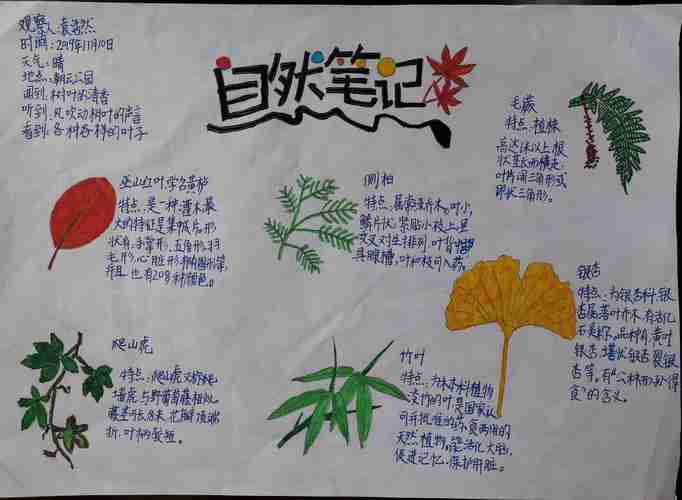 观察人:袁浩然
时间:2019年11月10日
天气:晴
地点:朝云公园
闻到:树叶的清香
听到:风吹动树叶的声音
看到:各种各样的叶子
自然笔记
毛蕨
特点:植株
高达1米以上,根
状茎长而横走,
叶片阔三角形或
卵状三角形。
巫山红叶,学名黄栌
特点:是一种灌木最
大的特征是集成片,形
状有:手掌形、五角形、羽
毛形、心脏形、椭圆形等,
并且也有20多种颜色。
侧柏
特点:属常绿乔木。叶小,
鳞片状,紧贴小枝上,呈
交叉对生排列,叶背中部
具腺槽,叶和枝可入药。
银杏
特点:为银杏科、银
杏属落叶乔木,有活化
石美称。品种有:黄叶
银杏、塔状银杏、裂银
杏等。有“公种而孙得
食”的含义。
爬山虎
特点:爬山虎又称爬
墙虎,与野葡萄藤相似,
藤茎可长18米,花瓣顶端
折,叶柄较短。
竹叶
特点:为禾本科植物
淡竹的叶,是国家认
可并批准的药食两用的
天然植物,能活化大脑,
促进记忆,保护肝脏。